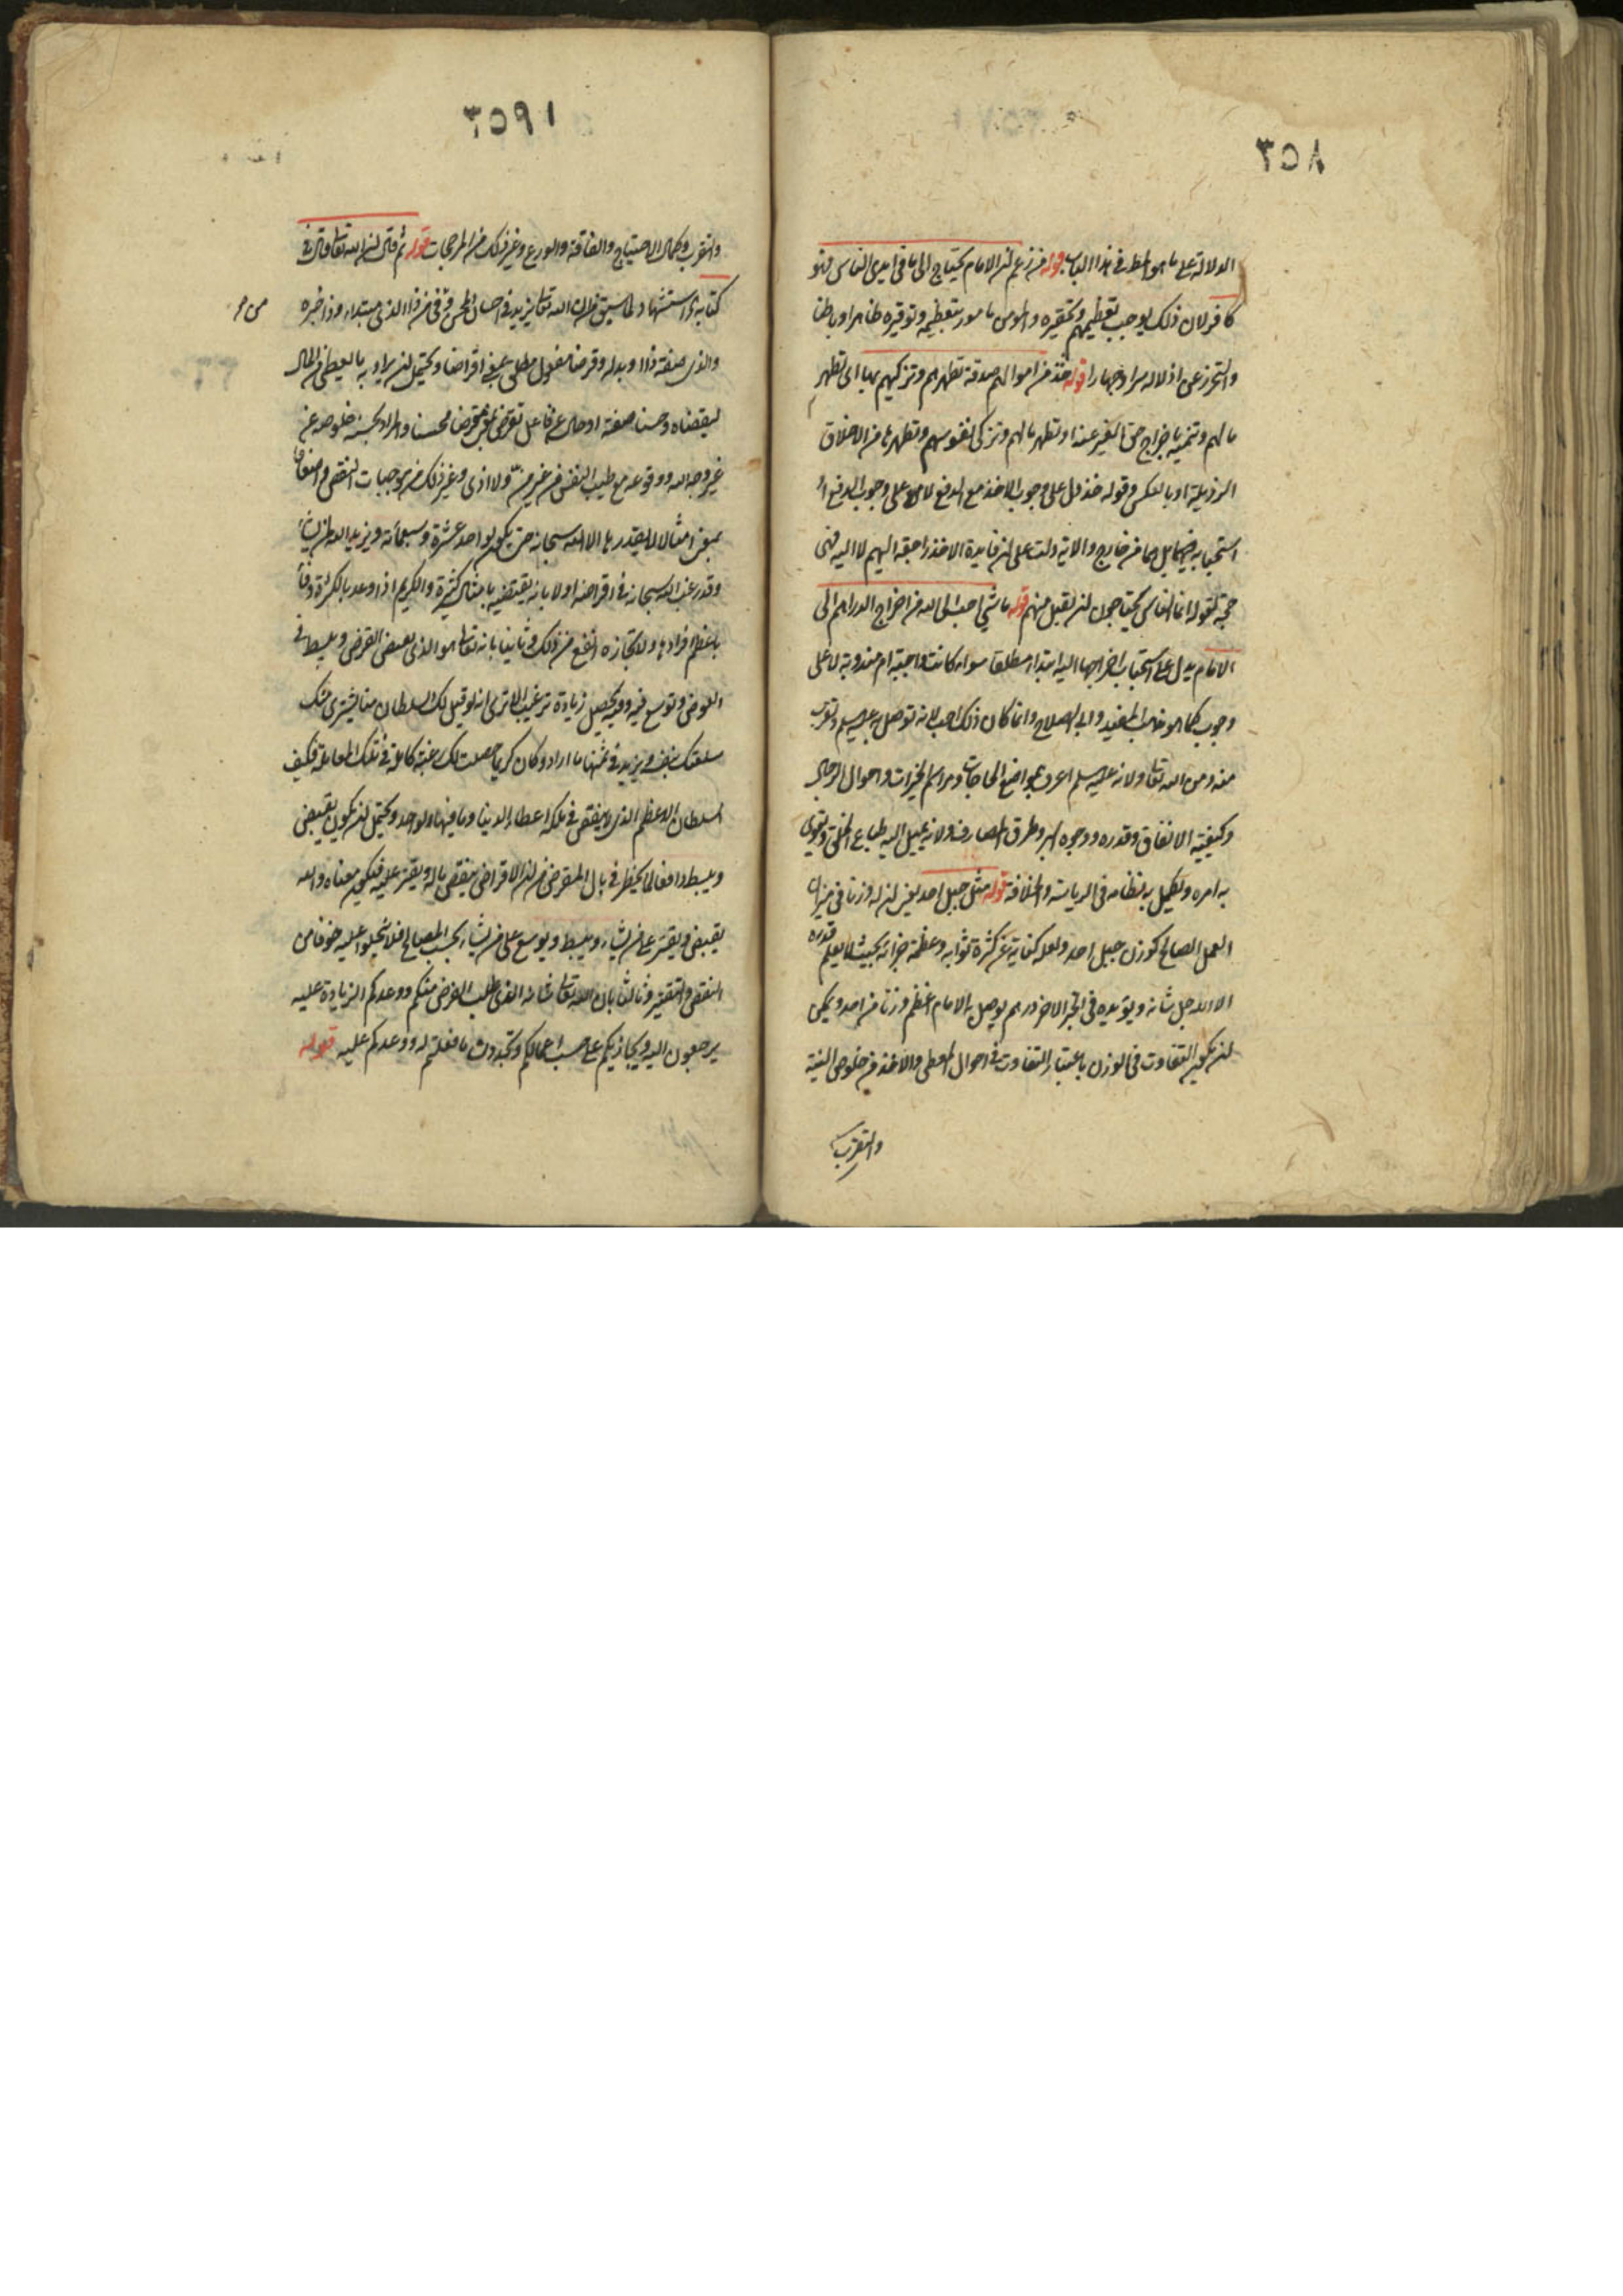 ٣٥٨
الدلالة على ما هو المط في هذا الباب قوله من زعم ان الامام يحتاج الى ما في ايدي الناس فهو
كافر لان ذلك يوجب تعظيمهم وتحقيره والمومن مامور بتعظيمه وتوقيره ظاهرا وباطنا
والتحرز عن اذلاله سرا وجهارا قوله خذ من اموالهم صدقة تطهرهم وتزكيهم بها اي تطهر
مالهم وتنميه باخراج حق الغير عنه او تطهر مالهم وتزكى نفوسهم وتطهرها من الاخلاق
الرذيلة او بالعكس وقوله خذ دل على وجوب الاخذ مع الدفع لا على وجوب الدفع او
استحبابه فهما من خارج والاية دلت على ان فايدة الاخذ راجعة اليهم لا اليه فهي
حجة لقوله انما الناس يحتاجون ان يقبل منهم قوله ما شيء احب الى الله من اخراج الدراهم الى
الامام يدل على استحباب اخراجها اليه ابتداء مطلقا سواء كانت واجبة ام مندوبة لا على
وجوب كما هو مذهب المفيد وابي الصلاح وانما كان ذلك احب لانه توصل به عليه السلم وتقرب
منه ومن الله تعالى ولانه عليه السلم اعرف بمواضع الحاجات ومراسم الخيرات واحوال الرجال
وكيفية الانفاق وقدره ووجوه البر وطرق المصارف ولانه يميل اليه طباع الخلق ويقوي
به امره ويكمل به نظامه في الرياسة والخلافة قوله مثل جبل احد يعني ان له وزنا في ميزان
العمل الصالح كوزن جبل احد ولعله كناية عن كثرة ثوابه وعظمة جزائه بحيث لا يعلم قدره
الا الله جل شانه ويؤيده في الخبر الاخر درهم يوصل به الامام اعظم وزنا من احد ويمكن
ان يكون التفاوت في الوزن باعتبار التفاوت في احوال المعطي والاخذ من خلوص النية
والتقرب
٣٥٩
والتقرب وكمال الاحتياج والفاقة والورع وغير ذلك من المرجحات قوله ثم قال ان الله تعالى قال في
كتابه استشهاد لما سبق من ان الله تعالى يزيد في احسان المحسن من ذا الذي مبتداء وذا خبره
والذي صفة ذا او بدله وقرضا مفعول مطلق بمعنى اقراضا ويحتمل ان يراد به ما يعطى من المال
ليقضاه وحسنا صفة او حال عن فاعل يقرض محسنا والمراد بحسنه خلوصه عن
غير وجه الله ووقوعه مع طيب النفس من غير من ولا اذى وغير ذلك من موجبات النقص واضعافا
بمعنى امثالا لا يقدرها الا الله سبحانه حتى يكون لواحد عشرة وسبعمائة ويزيد الله لمن يشاء
وقد رغب الله سبحانه في اقراضه اولا بانه يقتضيه بامثال كثيرة والكريم اذا وعد بالكثرة وفا
باعظم افرادها ولا تجارة انفع من ذلك وثانيا بانه تعالى هو الذي يقبض القرض ويبسط في
العوض ويوسع فيه وفيه يحصل زيادة ترغيب الا ترى انه لو قيل لك السلطان منا يشترى منك
سلعتك بنفسه ويزيد في ثمنها ما اراد وكان كريما حصلت لك رغبة كاملة في تلك المعاملة فكيف
السلطان الاعظم الذي لا ينقص في ملكه اعطاء الدنيا وما فيها لواحد ويحتمل ان يكون يقبض
ويبسط دافعا لما يخطر في بال المقرض من ان الاقراض ينقص ماله ويقتر عليه فيكون معناه والله
يقبض ويقتر على من يشاء ويبسط ويوسع على من يشاء بحسب المصالح فلا تبخلوا عليه خوفا من
النقص والتقتير وثالثا بان الله تعالى شانه الذي طلب القرض منكم ووعدكم الزيادة عليه
يرجعون اليه ويجازيكم على حسب اعمالكم وتجدون ما فعلتم له ووعدكم عليه قوله